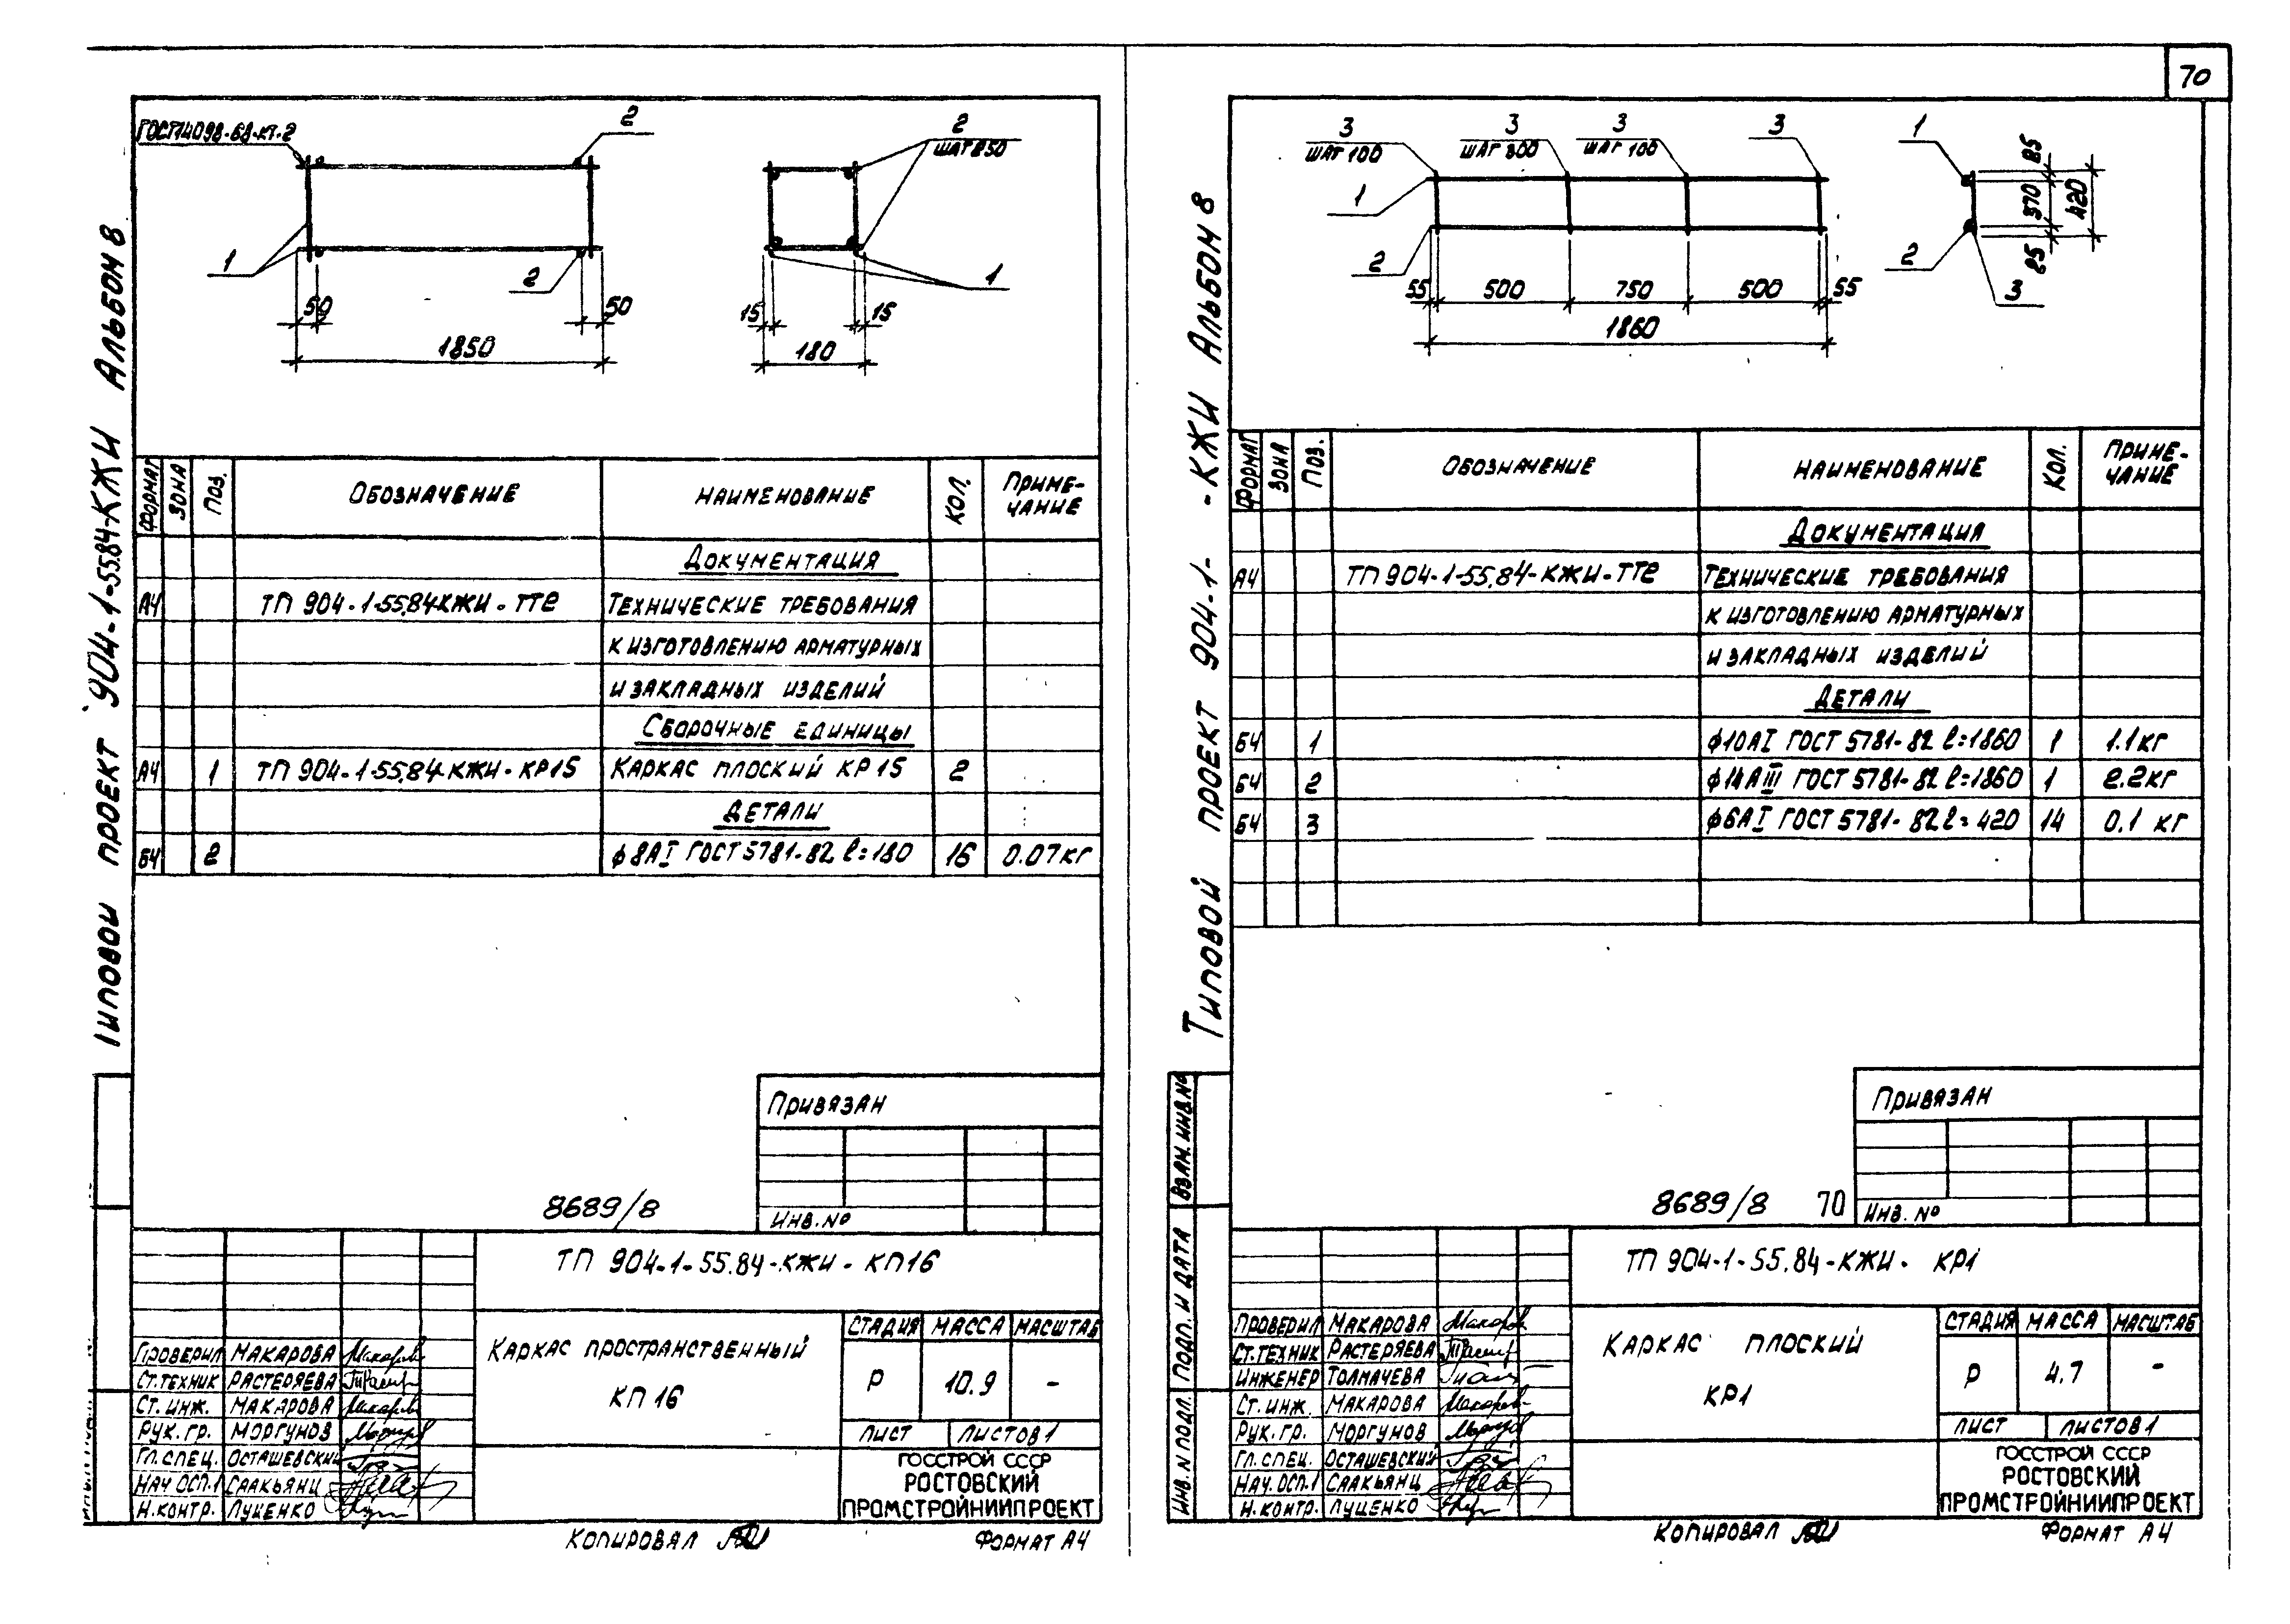 70
Типовой проект 904-1-55.84-КЖИ Альбом 8
ГОСТ14098-68-КТ-2
2
2
ШАГ 250
1
2
1
50
50
1850
15
15
180
ФОРМАТ ЗОНА ПОЗ. ОБОЗНАЧЕНИЕ НАИМЕНОВАНИЕ КОЛ. ПРИМЕ-
ЧАНИЕ
ДОКУМЕНТАЦИЯ
А4 ТП 904-1-55.84-КЖИ-ТТ2 ТЕХНИЧЕСКИЕ ТРЕБОВАНИЯ
К ИЗГОТОВЛЕНИЮ АРМАТУРНЫХ
И ЗАКЛАДНЫХ ИЗДЕЛИЙ
СБОРОЧНЫЕ ЕДИНИЦЫ
А4 1 ТП 904-1-55.84-КЖИ-КР15 КАРКАС ПЛОСКИЙ КР15 2
ДЕТАЛИ
БЧ 2 ф8АI ГОСТ 5781-82 ℓ=180 16 0.07кг
Привязан
8689/8
ИНВ. №
ТП 904-1-55.84-КЖИ-КП16
КАРКАС ПРОСТРАНСТВЕННЫЙ
КП 16
СТАДИЯ МАССА МАСШТАБ
Р 10.9 -
ЛИСТ ЛИСТОВ 1
ГОССТРОЙ СССР
РОСТОВСКИЙ
ПРОМСТРОЙНИИПРОЕКТ
ПРОВЕРИЛ МАКАРОВА
СТ.ТЕХНИК РАСТЕРЯЕВА
СТ. ИНЖ. МАКАРОВА
РУК. ГР. МОРГУНОВ
ГЛ. СПЕЦ. ОСТАШЕВСКИЙ
НАЧ ОСП-1 СААКЬЯНЦ
Н.КОНТР. ЛУЦЕНКО
КОПИРОВАЛ
ФОРМАТ А4
Типовой проект 904-1- -КЖИ Альбом 8
3
ШАГ 100
3
ШАГ 300
3
ШАГ 100
3
1
2
55 500 750 500 55
1860
1
2
3
25
370
420
25
ФОРМАТ ЗОНА ПОЗ. ОБОЗНАЧЕНИЕ НАИМЕНОВАНИЕ КОЛ. ПРИМЕ-
ЧАНИЕ
ДОКУМЕНТАЦИЯ
А4 ТП 904-1-55.84-КЖИ-ТТ2 ТЕХНИЧЕСКИЕ ТРЕБОВАНИЯ
К ИЗГОТОВЛЕНИЮ АРМАТУРНЫХ
И ЗАКЛАДНЫХ ИЗДЕЛИЙ
ДЕТАЛИ
БЧ 1 ф10АI ГОСТ 5781-82 ℓ=1860 1 1.1кг
БЧ 2 ф14АIII ГОСТ 5781-82 ℓ=1860 1 2.2кг
БЧ 3 ф6АI ГОСТ 5781-82 ℓ=420 14 0.1 кг
Привязан
8689/8 70
ИНВ. №
ВЗАМ. ИНВ.№
ПОДП. И ДАТА
ИНВ. N ПОДЛ.
ТП 904-1-55.84-КЖИ- КР1
КАРКАС ПЛОСКИЙ
КР1
СТАДИЯ МАССА МАСШТАБ
Р 4.7 -
ЛИСТ ЛИСТОВ 1
ГОССТРОЙ СССР
РОСТОВСКИЙ
ПРОМСТРОЙНИИПРОЕКТ
ПРОВЕРИЛ МАКАРОВА
СТ.ТЕХНИК РАСТЕРЯЕВА
ИНЖЕНЕР ТОЛМАЧЕВА
СТ. ИНЖ. МАКАРОВА
РУК. ГР. МОРГУНОВ
ГЛ. СПЕЦ. ОСТАШЕВСКИЙ
НАЧ. ОСП-1 СААКЬЯНЦ
Н.КОНТР. ЛУЦЕНКО
КОПИРОВАЛ
ФОРМАТ А4